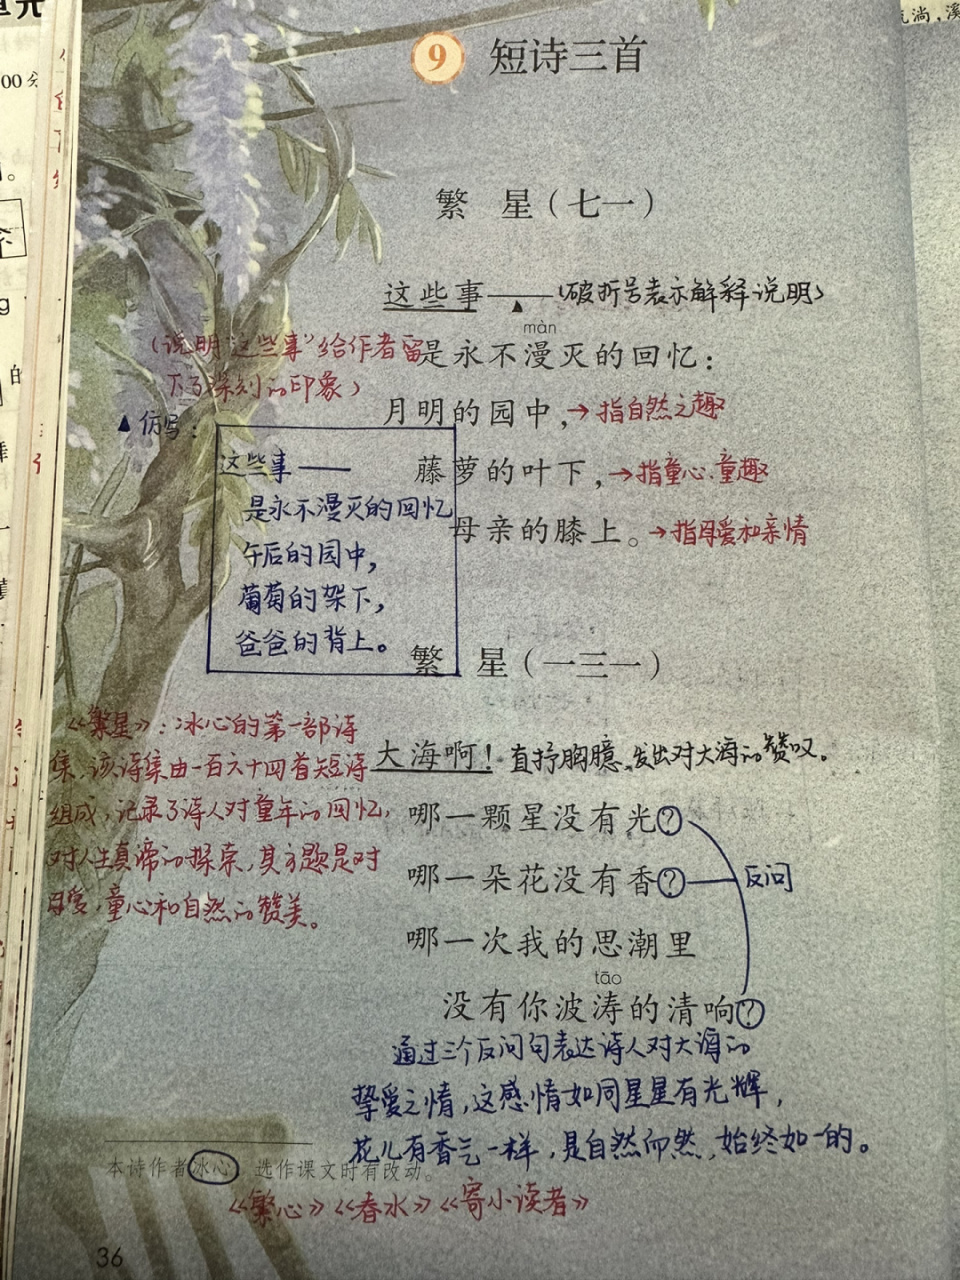 9 短诗三首
繁 星（七一）
这些事——（破折号表示解释说明）
màn
（说明"这些事"给作者留
下了深刻的印象）
是永不漫灭的回忆：
月明的园中，→指自然之趣
藤萝的叶下，→指童心、童趣
母亲的膝上。→指母爱和亲情
▲仿写：
这些事——
是永不漫灭的回忆
午后的园中，
葡萄的架下，
爸爸的背上。
繁 星（一三一）
《繁星》：冰心的第一部诗
集，该诗集由一百六十四首短诗
组成，记录了诗人对童年的回忆，
对人生真谛的探索，其主题是对
母爱，童心和自然的赞美。
大海啊！直抒胸臆，发出对大海的赞叹。
哪一颗星没有光？
哪一朵花没有香？
反问
哪一次我的思潮里
tāo
没有你波涛的清响？
通过三个反问句表达诗人对大海的
挚爱之情，这感情如同星星有光辉，
花儿有香气一样，是自然而然，始终如一的。
本诗作者冰心，选作课文时有改动。
《繁心》《春水》《寄小读者》
36